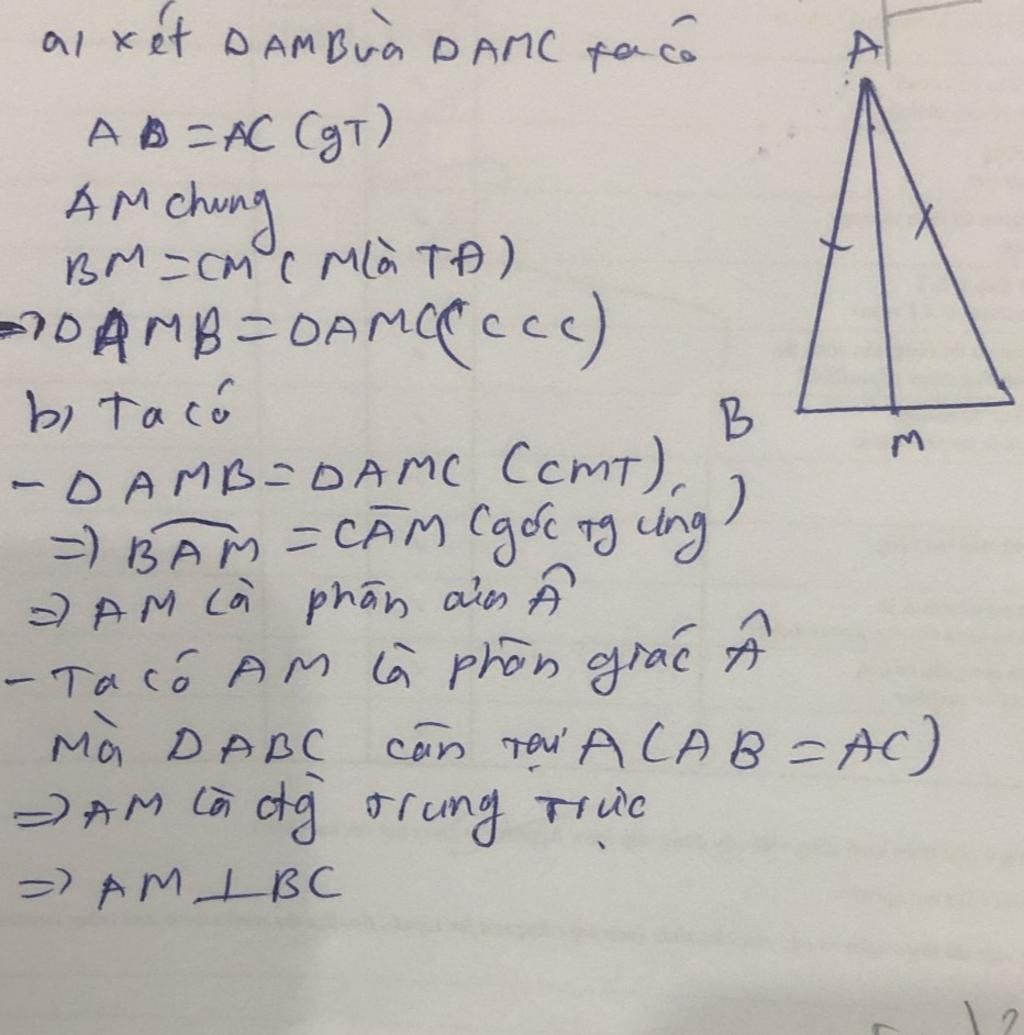 a) xét ΔAMB và ΔAMC ta có
A
AB = AC (gT)
AM chung
BM = CM ( M là TĐ)
=> ΔAMB = ΔAMC (CCC)
b) Ta có
B
M
- ΔAMB = ΔAMC (CMT)
=> BAM = CAM (góc tg ứng)
=> AM là phân của Â
- Ta có AM là phân giác Â
Mà ΔABC cân tại A (AB = AC)
=> AM là đg trung trực
=> AM ⊥ BC